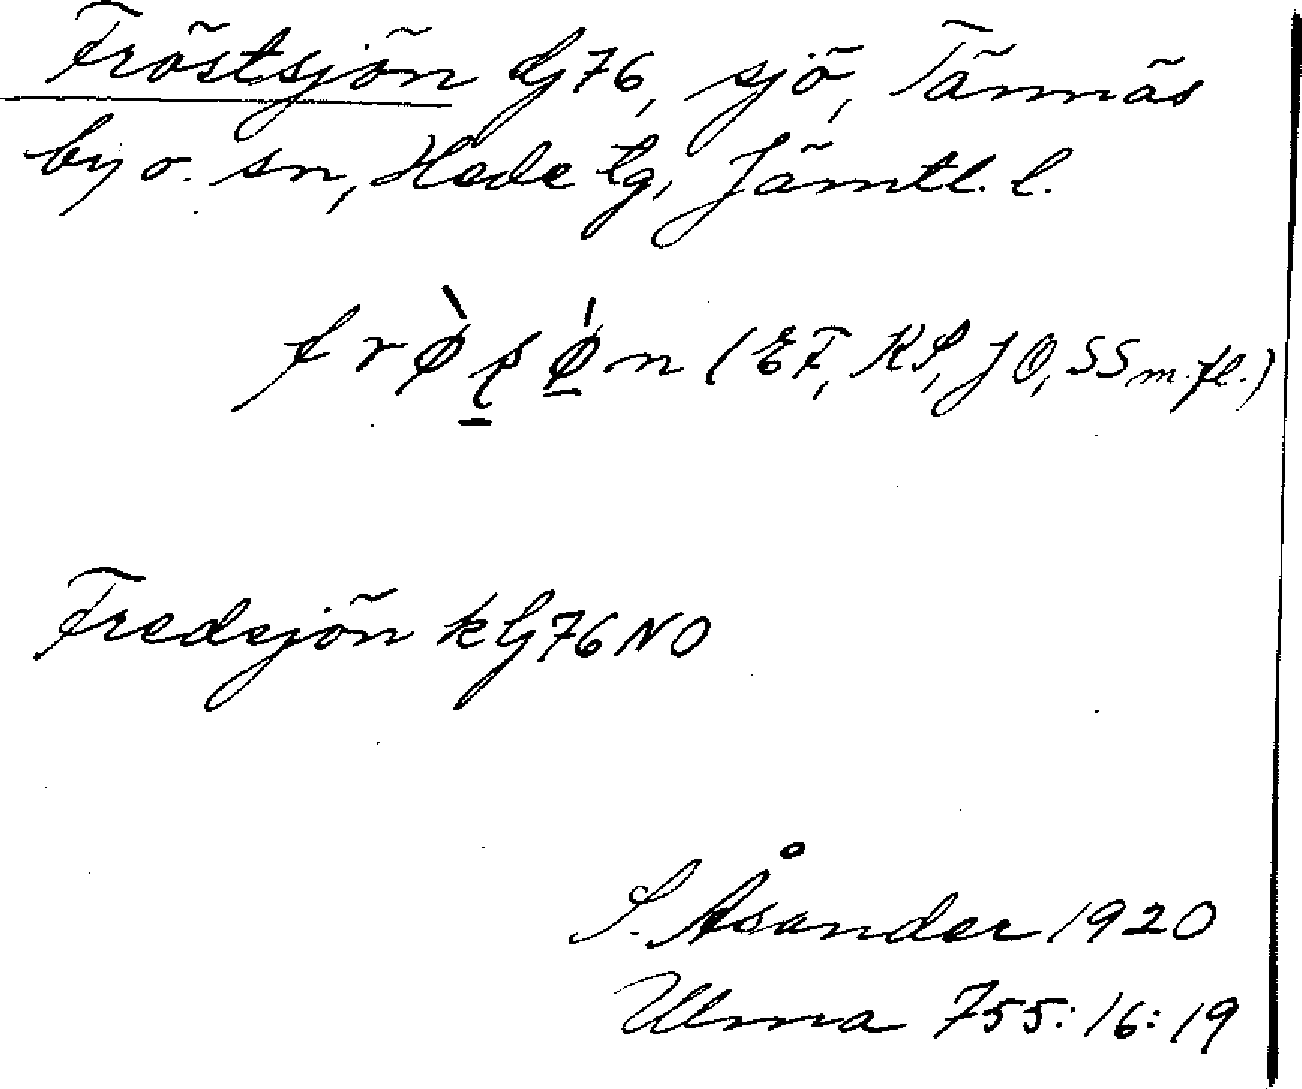 Fröstsjön G76, sjö, Tännäs
by o. sn, Hede tg, Jämtl. l.
(EF, KS, JO, SS m.fl.)
Fredsjön k G76NO
S. Åsander 1920
Ulma 755:16:19